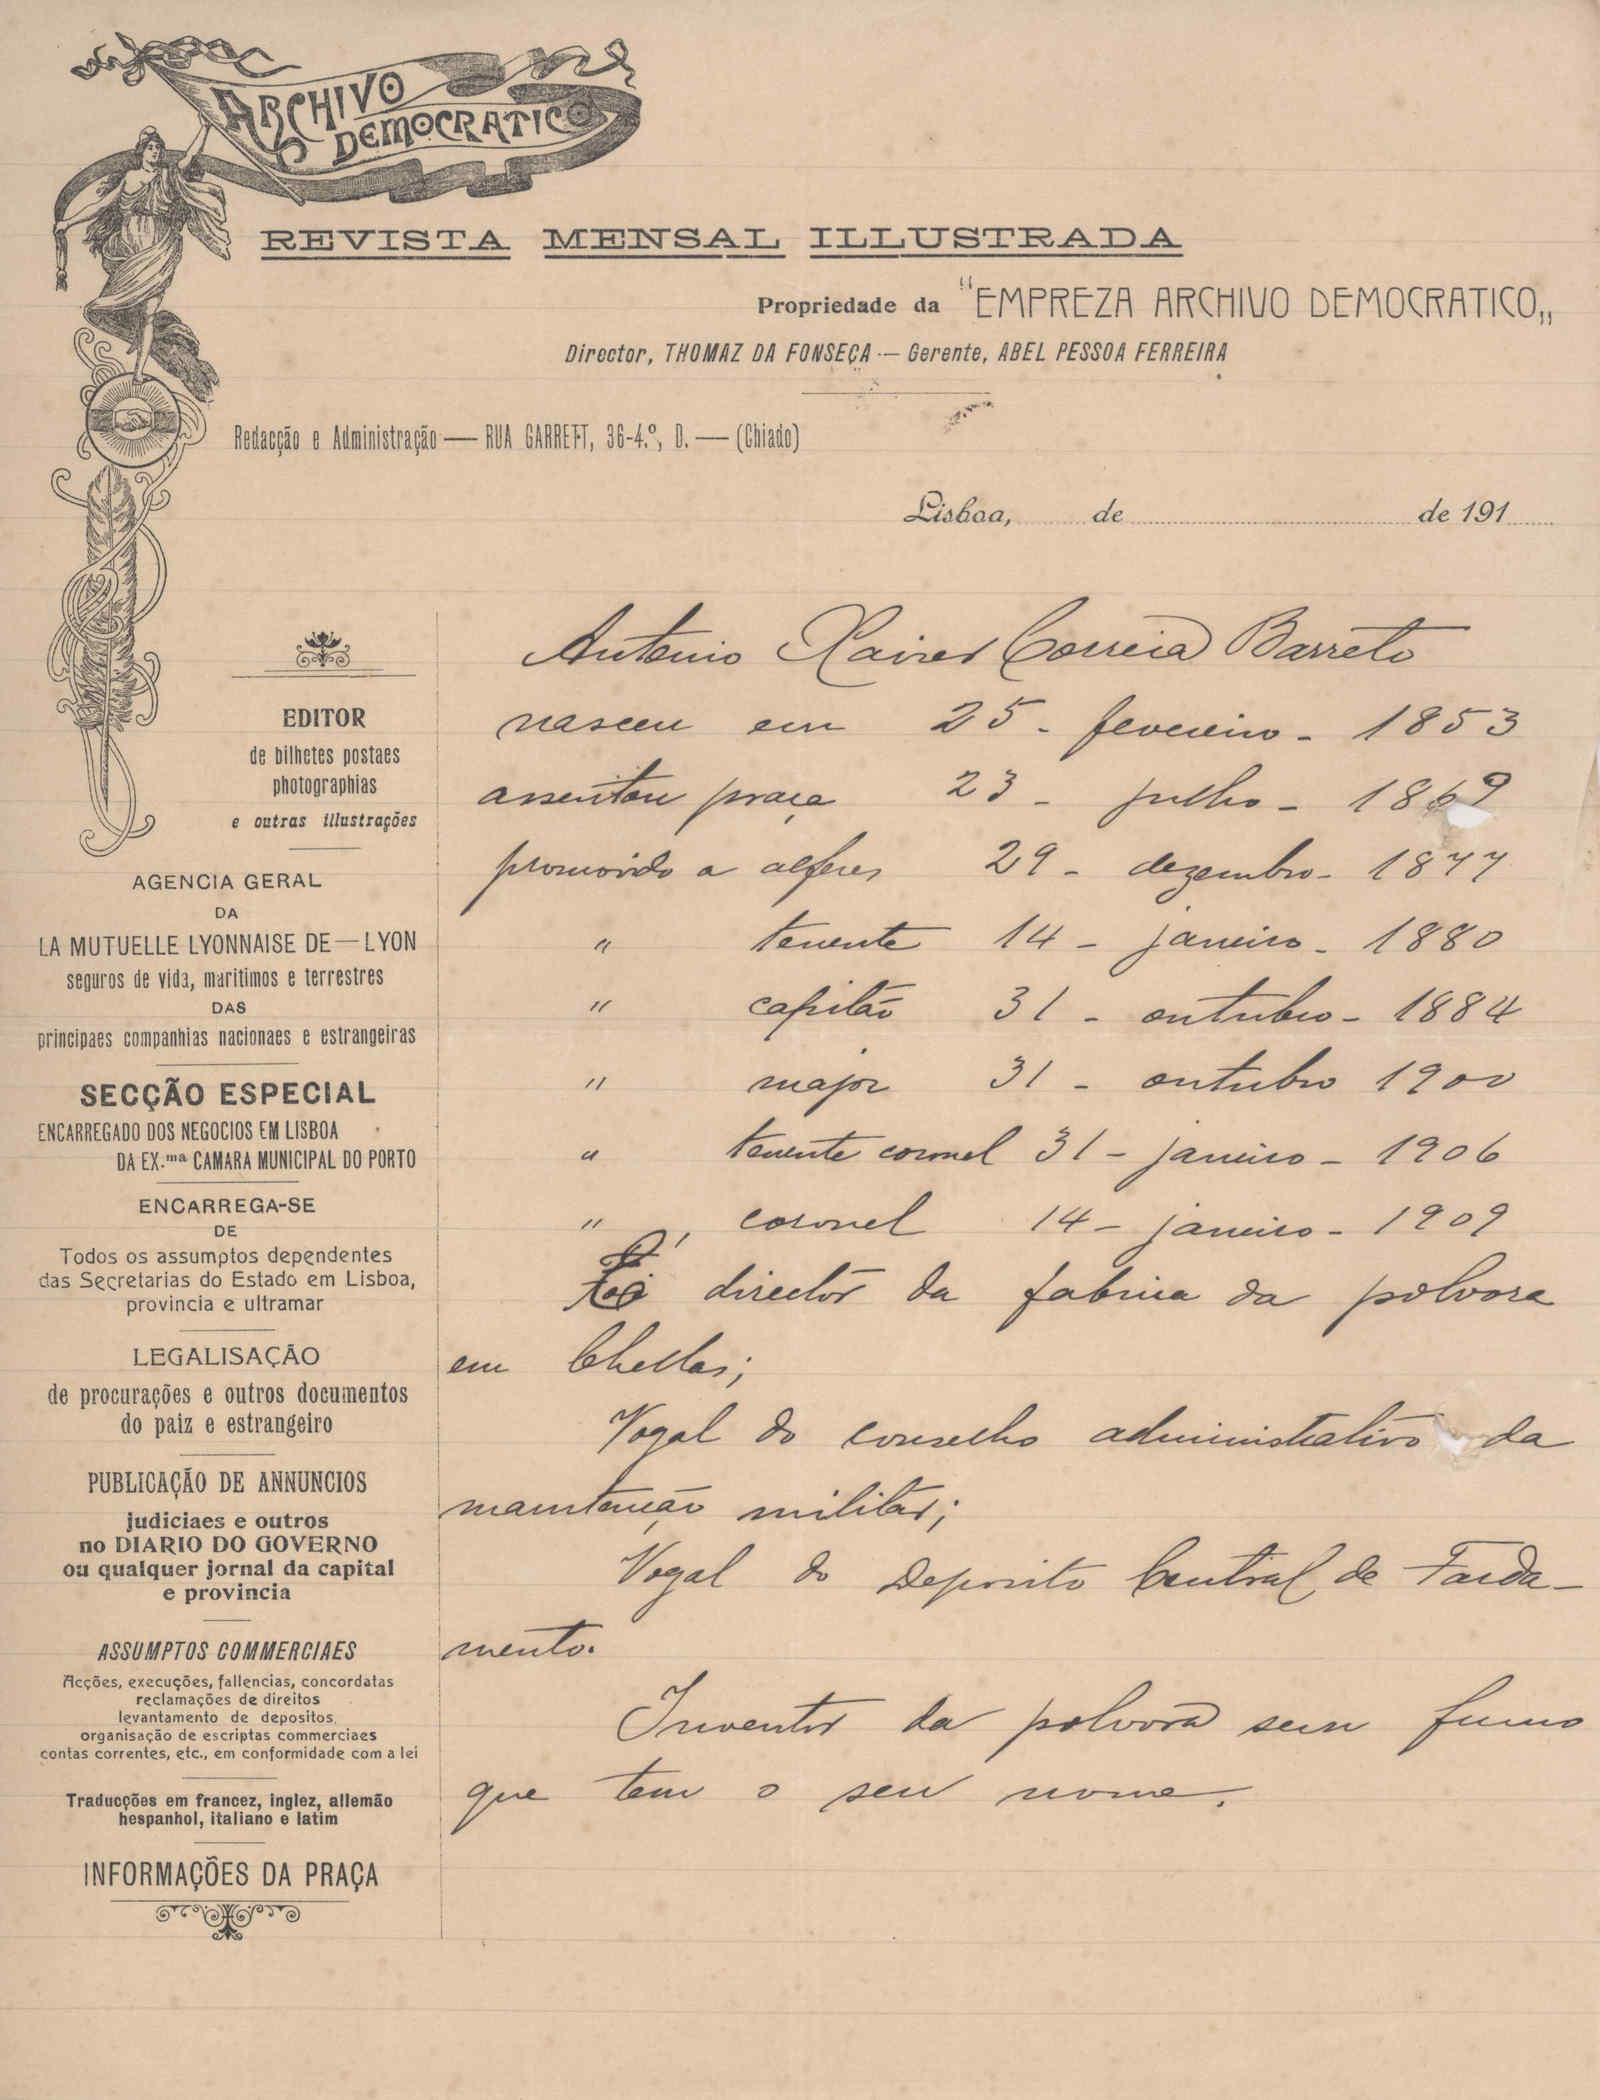 ARCHIVO
DEMOCRATICO
REVISTA MENSAL ILLUSTRADA
Propriedade da "EMPREZA ARCHIVO DEMOCRATICO„
Director, THOMAZ DA FONSECA — Gerente, ABEL PESSOA FERREIRA
Redacção e Administração — RUA GARRETT, 36-4.º, D. — (Chiado)
Lisboa, de de 191
EDITOR
de bilhetes postaes
photographias
e outras illustrações
AGENCIA GERAL
DA
LA MUTUELLE LYONNAISE DE — LYON
seguros de vida, maritimos e terrestres
DAS
principaes companhias nacionaes e estrangeiras
SECÇÃO ESPECIAL
ENCARREGADO DOS NEGOCIOS EM LISBOA
DA EX.ma CAMARA MUNICIPAL DO PORTO
ENCARREGA-SE
DE
Todos os assumptos dependentes
das Secretarias do Estado em Lisboa,
provincia e ultramar
LEGALISAÇÃO
de procurações e outros documentos
do paiz e estrangeiro
PUBLICAÇÃO DE ANNUNCIOS
judiciaes e outros
no DIARIO DO GOVERNO
ou qualquer jornal da capital
e provincia
ASSUMPTOS COMMERCIAES
Acções, execuções, fallencias, concordatas
reclamações de direitos
levantamento de depositos,
organisação de escriptas commerciaes
contas correntes, etc., em conformidade com a lei
Traducções em francez, inglez, allemão
hespanhol, italiano e latim
INFORMAÇÕES DA PRAÇA
Antonio Xavier Correia Barreto
nasceu em 25 - fevereiro - 1853
assentou praça 23 - julho - 1869
promovido a alferes 29 - dezembro - 1877
" tenente 14 - janeiro - 1880
" capitão 31 - outubro - 1884
" major 31 - outubro 1900
" tenente coronel 31 - janeiro - 1906
" coronel 14 - janeiro - 1909
É director da fabrica da polvora
em Chellas;
Vogal do conselho administrativo da
manutenção militar;
Vogal do Deposito Central de Farda-
mento.
Inventor da polvora sem fumo
que tem o seu nome.